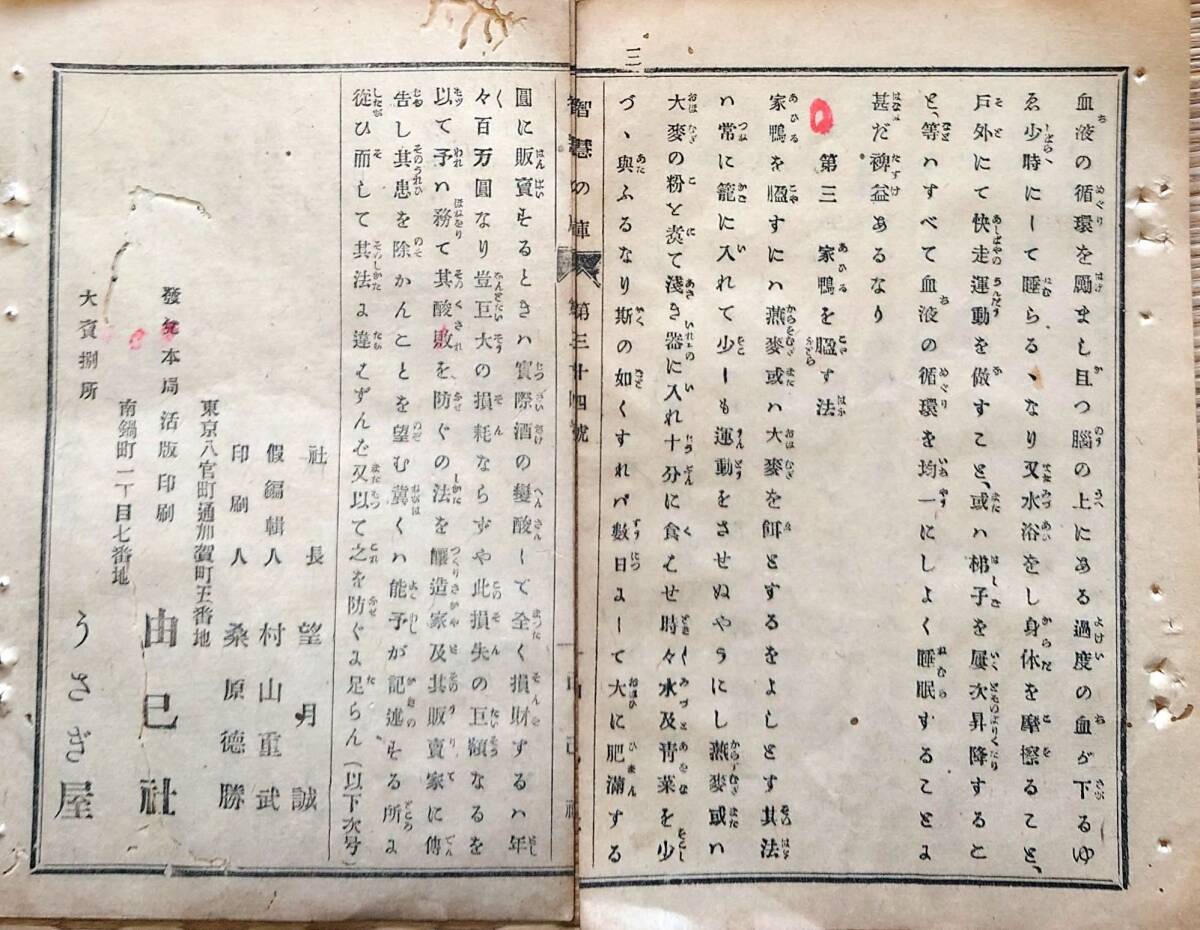 三
血液の循環を勵まし且つ腦の上にある過度の血が下るゆ
ゑ少時にして睡らるゝなり又水浴をし身体を摩擦ること、
戸外にて快走運動を做すこと、或ハ梯子を屢次昇降するこ
と、等ハすべて血液の循環を均一にしよく睡眠することに
甚だ裨益あるなり
第三 家鴨を膃す法
家鴨を膃すにハ燕麥或ハ大麥を餌とするをよしとす其法
ハ常に籠に入れて少しも運動をさせぬやうにし燕麥或ハ
大麥の粉と煑て淺き器に入れ十分に食ませ時々水及青菜を少
づゝ與ふるなり斯の如くすれバ數日にして大に肥滿する
智慧の庫 第三十四號
圓に販賣するときハ實際酒の變酸して全く損財するハ年
々百万圓なり豈巨大の損耗ならずや此損失の巨額なるを
以て予ハ務て其酸敗を防ぐの法を釀造家及其販賣家に傳
告し其患を除かんことを望む冀くハ能予が記述する所に
從ひ而して其法に違はずんば又以て之を防ぐに足らん(以下次号)
社長 望月誠
假編輯人 村山重武
印刷人 桑原德勝
東京八官町通加賀町五番地
發兌本局活版印刷 由己社
南鍋町二丁目七番地
大賣捌所 うさぎ屋